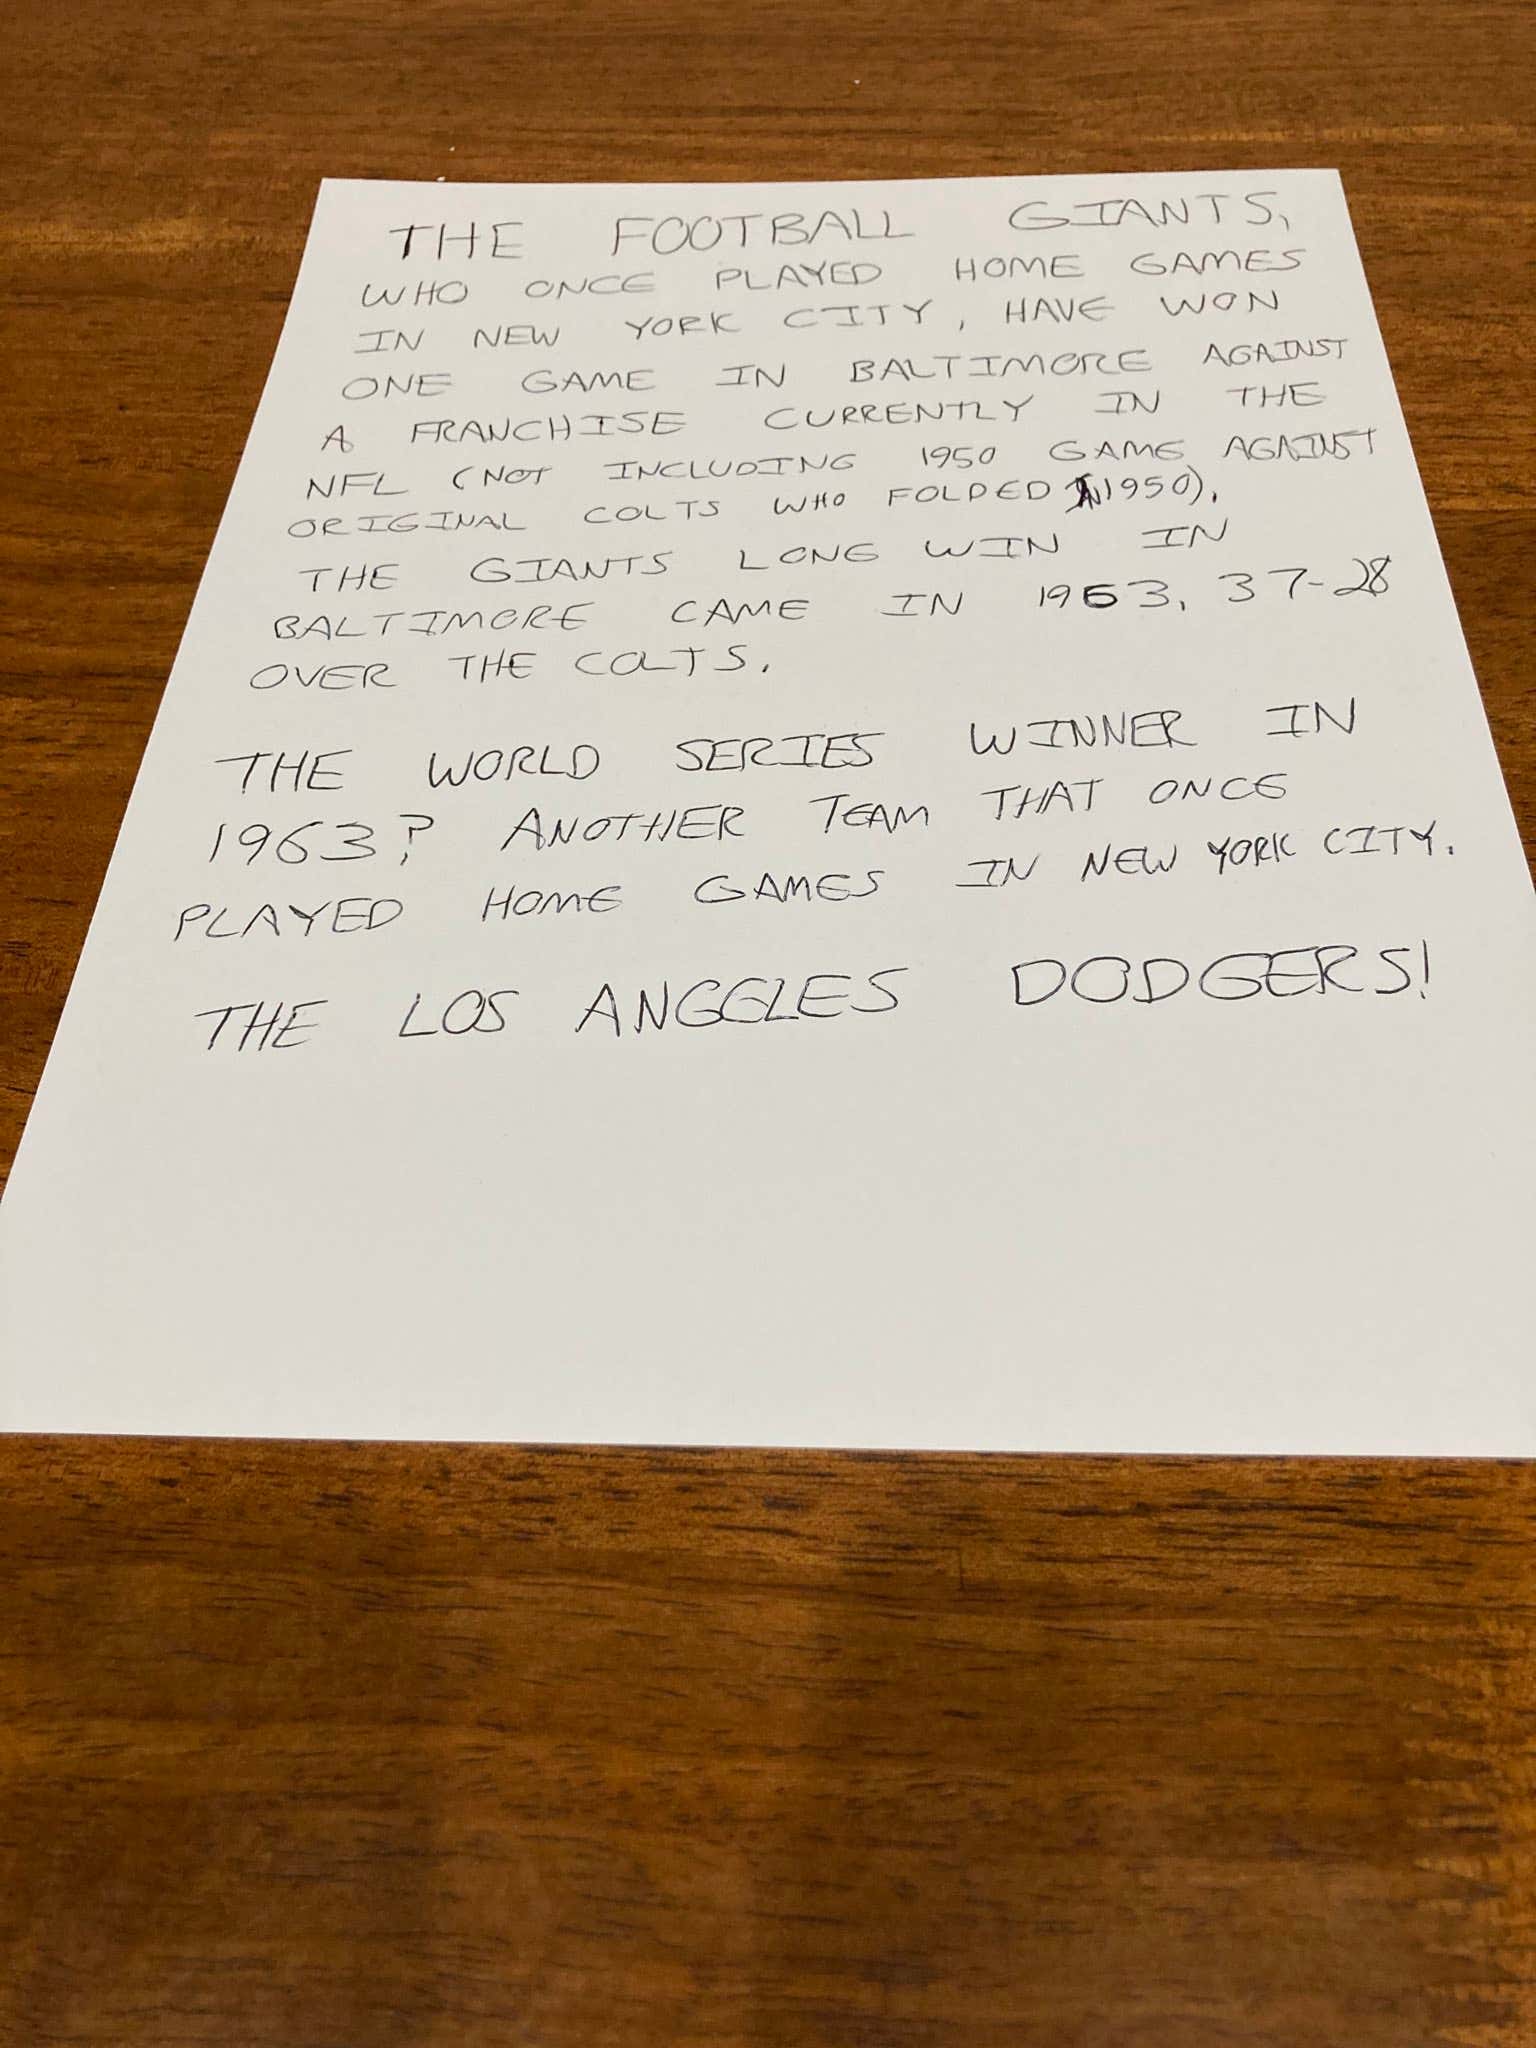 THE FOOTBALL GIANTS,
WHO ONCE PLAYED HOME GAMES
IN NEW YORK CITY, HAVE WON
ONE GAME IN BALTIMORE AGAINST
A FRANCHISE CURRENTLY IN THE
NFL (NOT INCLUDING 1950 GAME AGAINST
ORIGINAL COLTS WHO FOLDED IN 1950).
THE GIANTS LONG WIN IN
BALTIMORE CAME IN 1963, 37-28
OVER THE COLTS.
THE WORLD SERIES WINNER IN
1963? ANOTHER TEAM THAT ONCE
PLAYED HOME GAMES IN NEW YORK CITY.
THE LOS ANGGLES DODGERS!